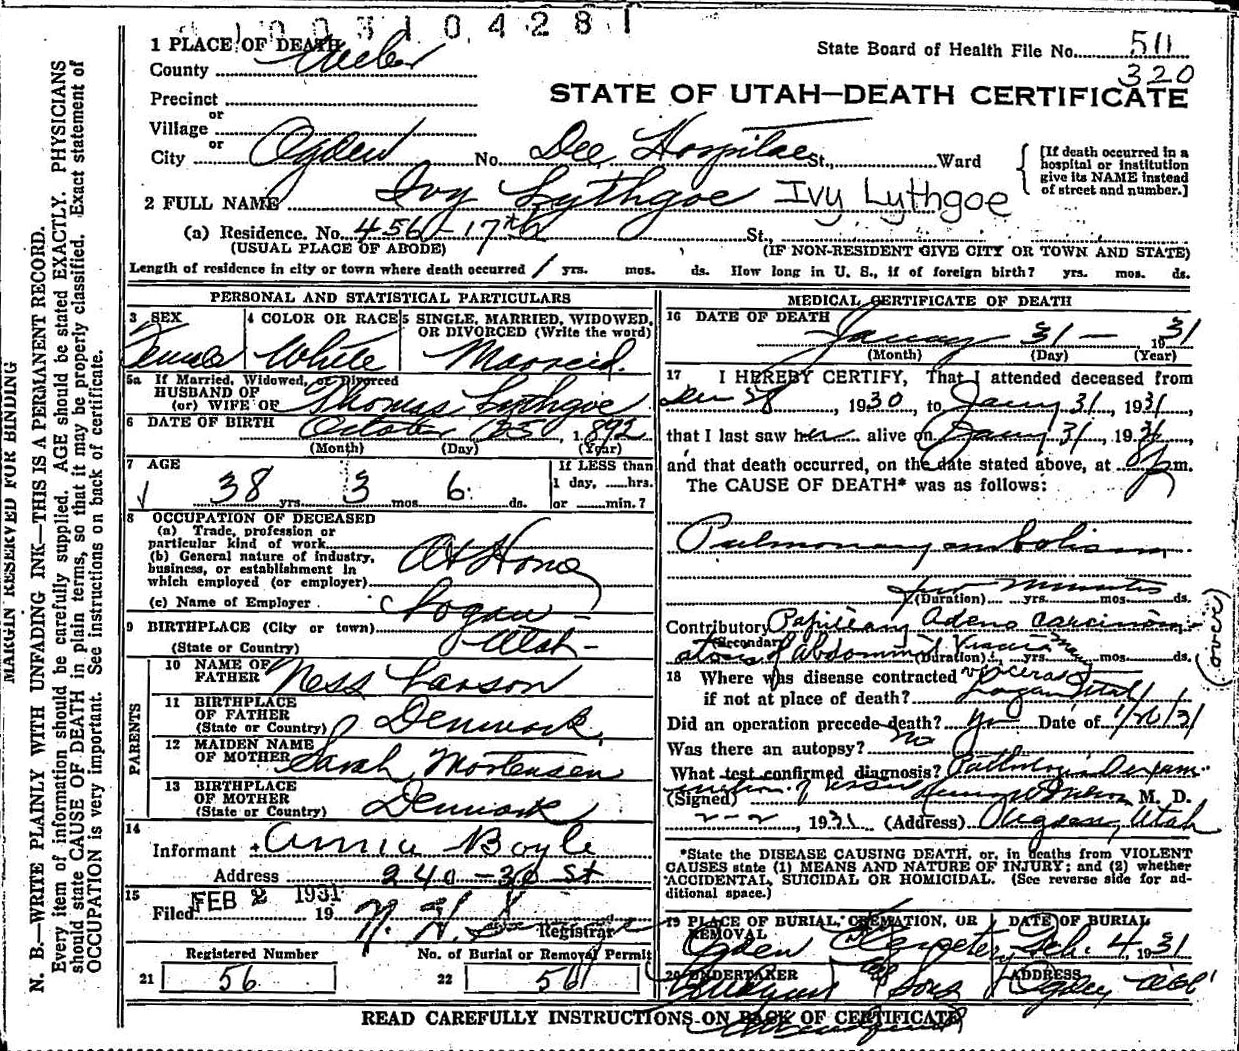 1003104281
1 PLACE OF DEATH
County Weber
State Board of Health File No. 511
320
Precinct
or
Village
or
City Ogden No. Dee Hospital St., Ward
STATE OF UTAH—DEATH CERTIFICATE
[If death occurred in a hospital or institution give its NAME instead of street and number.]
2 FULL NAME Ivy Lythgoe Ivy Lythgoe
(a) Residence. No. 456-17th St.,
(USUAL PLACE OF ABODE) (IF NON-RESIDENT GIVE CITY OR TOWN AND STATE)
Length of residence in city or town where death occurred 1 yrs. mos. ds. How long in U. S., if of foreign birth? yrs. mos. ds.
PERSONAL AND STATISTICAL PARTICULARS
3 SEX
Female
4 COLOR OR RACE
White
5 SINGLE, MARRIED, WIDOWED, OR DIVORCED (Write the word)
Married.
5a If Married, Widowed, or Divorced
HUSBAND OF
(or) WIFE OF Thomas Lythgoe
6 DATE OF BIRTH October 25, 1892
(Month) (Day) (Year)
7 AGE
38 yrs. 3 mos. 6 ds.
If LESS than
1 day, ......hrs.
or ......min.?
8 OCCUPATION OF DECEASED
(a) Trade, profession or
particular kind of work
(b) General nature of industry,
business, or establishment in
which employed (or employer)
At Home
(c) Name of Employer
9 BIRTHPLACE (City or town) Logan
(State or Country) Utah
PARENTS
10 NAME OF
FATHER Ness Larson
11 BIRTHPLACE
OF FATHER
(State or Country) Denmark
12 MAIDEN NAME
OF MOTHER Sarah Mortensen
13 BIRTHPLACE
OF MOTHER
(State or Country) Denmark
14
Informant Annie Boyle
Address 240-30 St
15
Filed FEB 2 1931 19 N. H. Registrar
Registered Number
21 56
No. of Burial or Removal Permit
22 56
MEDICAL CERTIFICATE OF DEATH
16 DATE OF DEATH
January 31 - 1931
(Month) (Day) (Year)
17 I HEREBY CERTIFY, That I attended deceased from
Dec 28, 1930, to Jany 31, 1931,
that I last saw her alive on Jany 31, 1931,
and that death occurred, on the date stated above, at 8 p m.
The CAUSE OF DEATH* was as follows:
Pulmonary embolism
few minutes
(Duration) yrs. mos. ds.
Contributory Papillary Adeno carcinom-
(Secondary)
atosis of abdominal Viscera
(Duration) yrs. mos. ds.
(over)
18 Where was disease contracted viscera
if not at place of death? Logan Utah
Did an operation precede death? yes Date of 1/20/31
Was there an autopsy? no
What test confirmed diagnosis? Pathologic exam-
ination of tissue
(Signed) M. D.
2-2, 1931 (Address) Ogden, Utah
*State the DISEASE CAUSING DEATH, or, in deaths from VIOLENT
CAUSES state (1) MEANS AND NATURE OF INJURY; and (2) whether
ACCIDENTAL, SUICIDAL OR HOMICIDAL. (See reverse side for ad-
ditional space.)
19 PLACE OF BURIAL, CREMATION, OR REMOVAL
Ogden Cemetery
DATE OF BURIAL
Feb. 4, 1931
20 UNDERTAKER
& Sons
ADDRESS
Ogden
READ CAREFULLY INSTRUCTIONS ON BACK OF CERTIFICATE
MARGIN RESERVED FOR BINDING
N. B.—WRITE PLAINLY WITH UNFADING INK—THIS IS A PERMANENT RECORD.
Every item of information should be carefully supplied. AGE should be stated EXACTLY. PHYSICIANS
should state CAUSE OF DEATH in plain terms, so that it may be properly classified. Exact statement of
OCCUPATION is very important. See instructions on back of certificate.